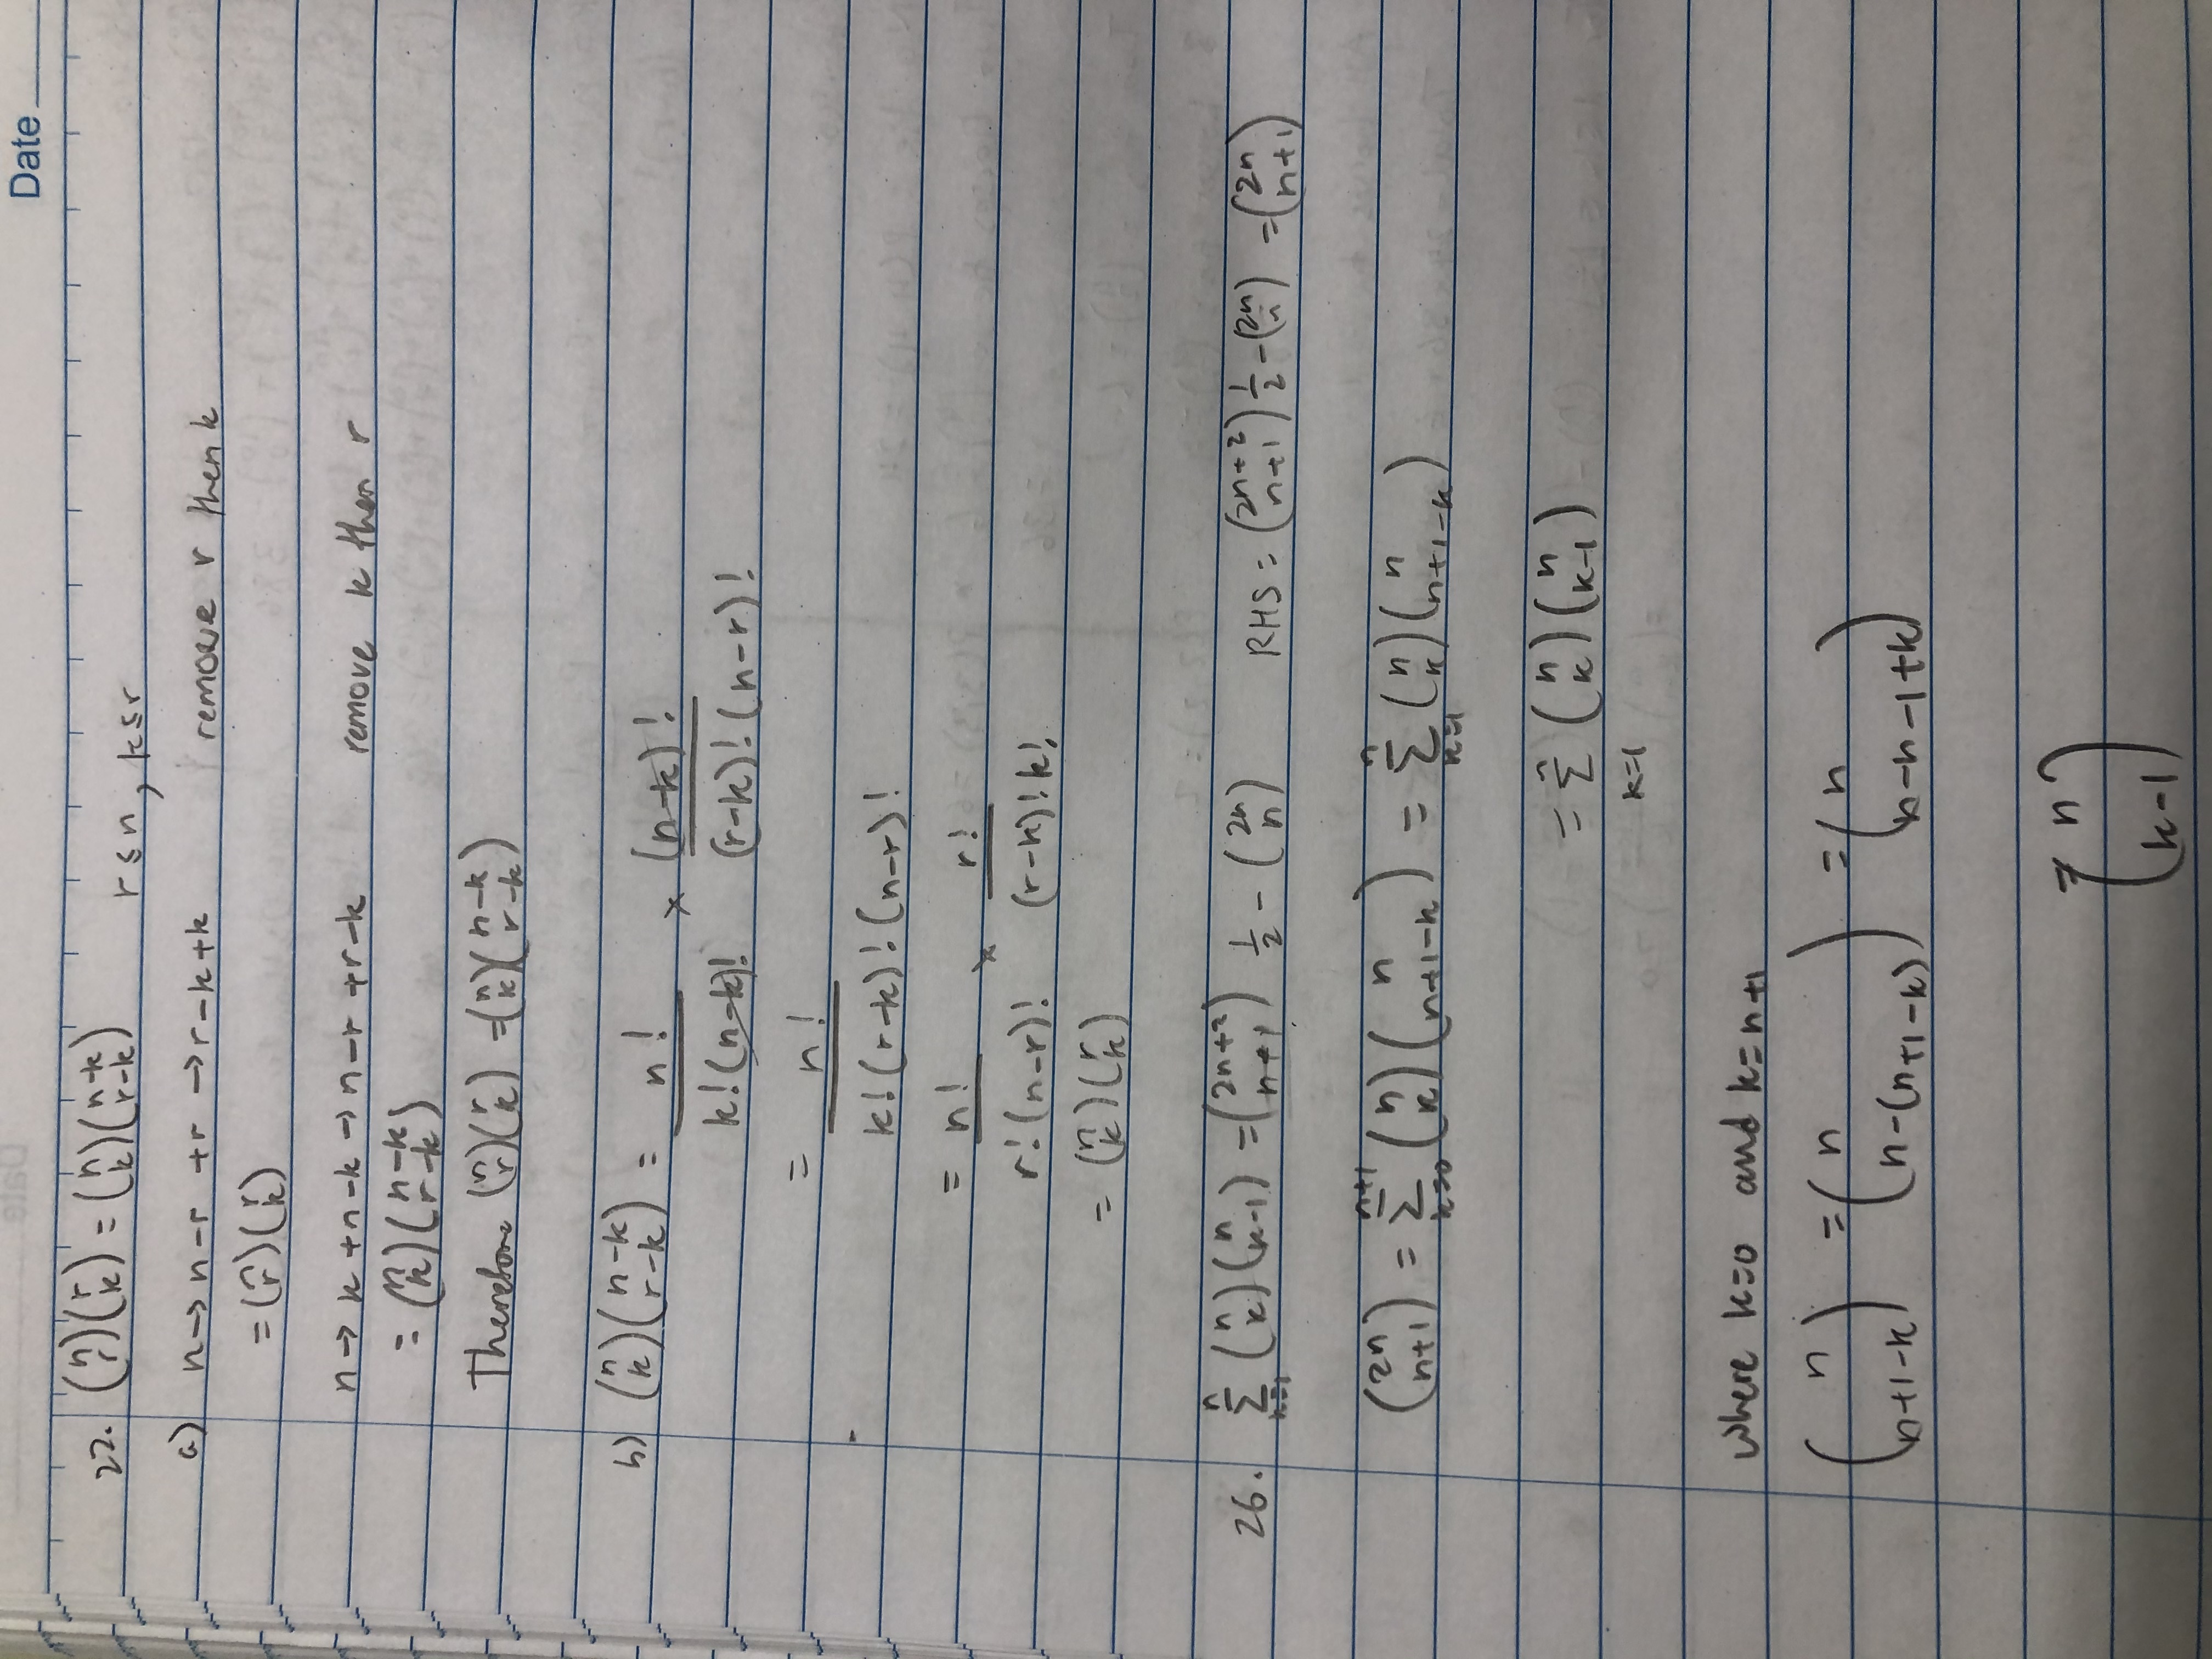 Date
22. (n r)(r k) = (n k)(n-k r-k)   r ≤ n, k ≤ r
a) n → n-r +r → r-k+k   remove r then k
= (n r)(r k)
n → k + n-k → n-r +r-k   remove k then r
= (n k)(n-k r-k)
Therefore (n r)(r k) = (n k)(n-k r-k)
b) (n k)(n-k r-k) = n! / k!(n-k)! × (n-k)! / (r-k)!(n-r)!
= n! / k!(r-k)!(n-r)!
= n! / r!(n-r)! × r! / (r-k)!k!
= (n k)(r k)
26. Σ_{k=1}^{n} (n k)(n k-1) = (2n+2 n+1) 1/2 - (2n n)   RHS = (2n+2 n+1) 1/2 - (2n n) = (2n n+1)
(2n n+1) = Σ_{k=0}^{n+1} (n k)(n n+1-k) = Σ_{k=1}^{n} (n k)(n n+1-k)
= Σ_{k=1}^{n} (n k)(n k-1)
where k=0 and k=n+1
(n n+1-k) = (n n-(n+1-k)) = (n n-n-1+k)
= (n k-1)